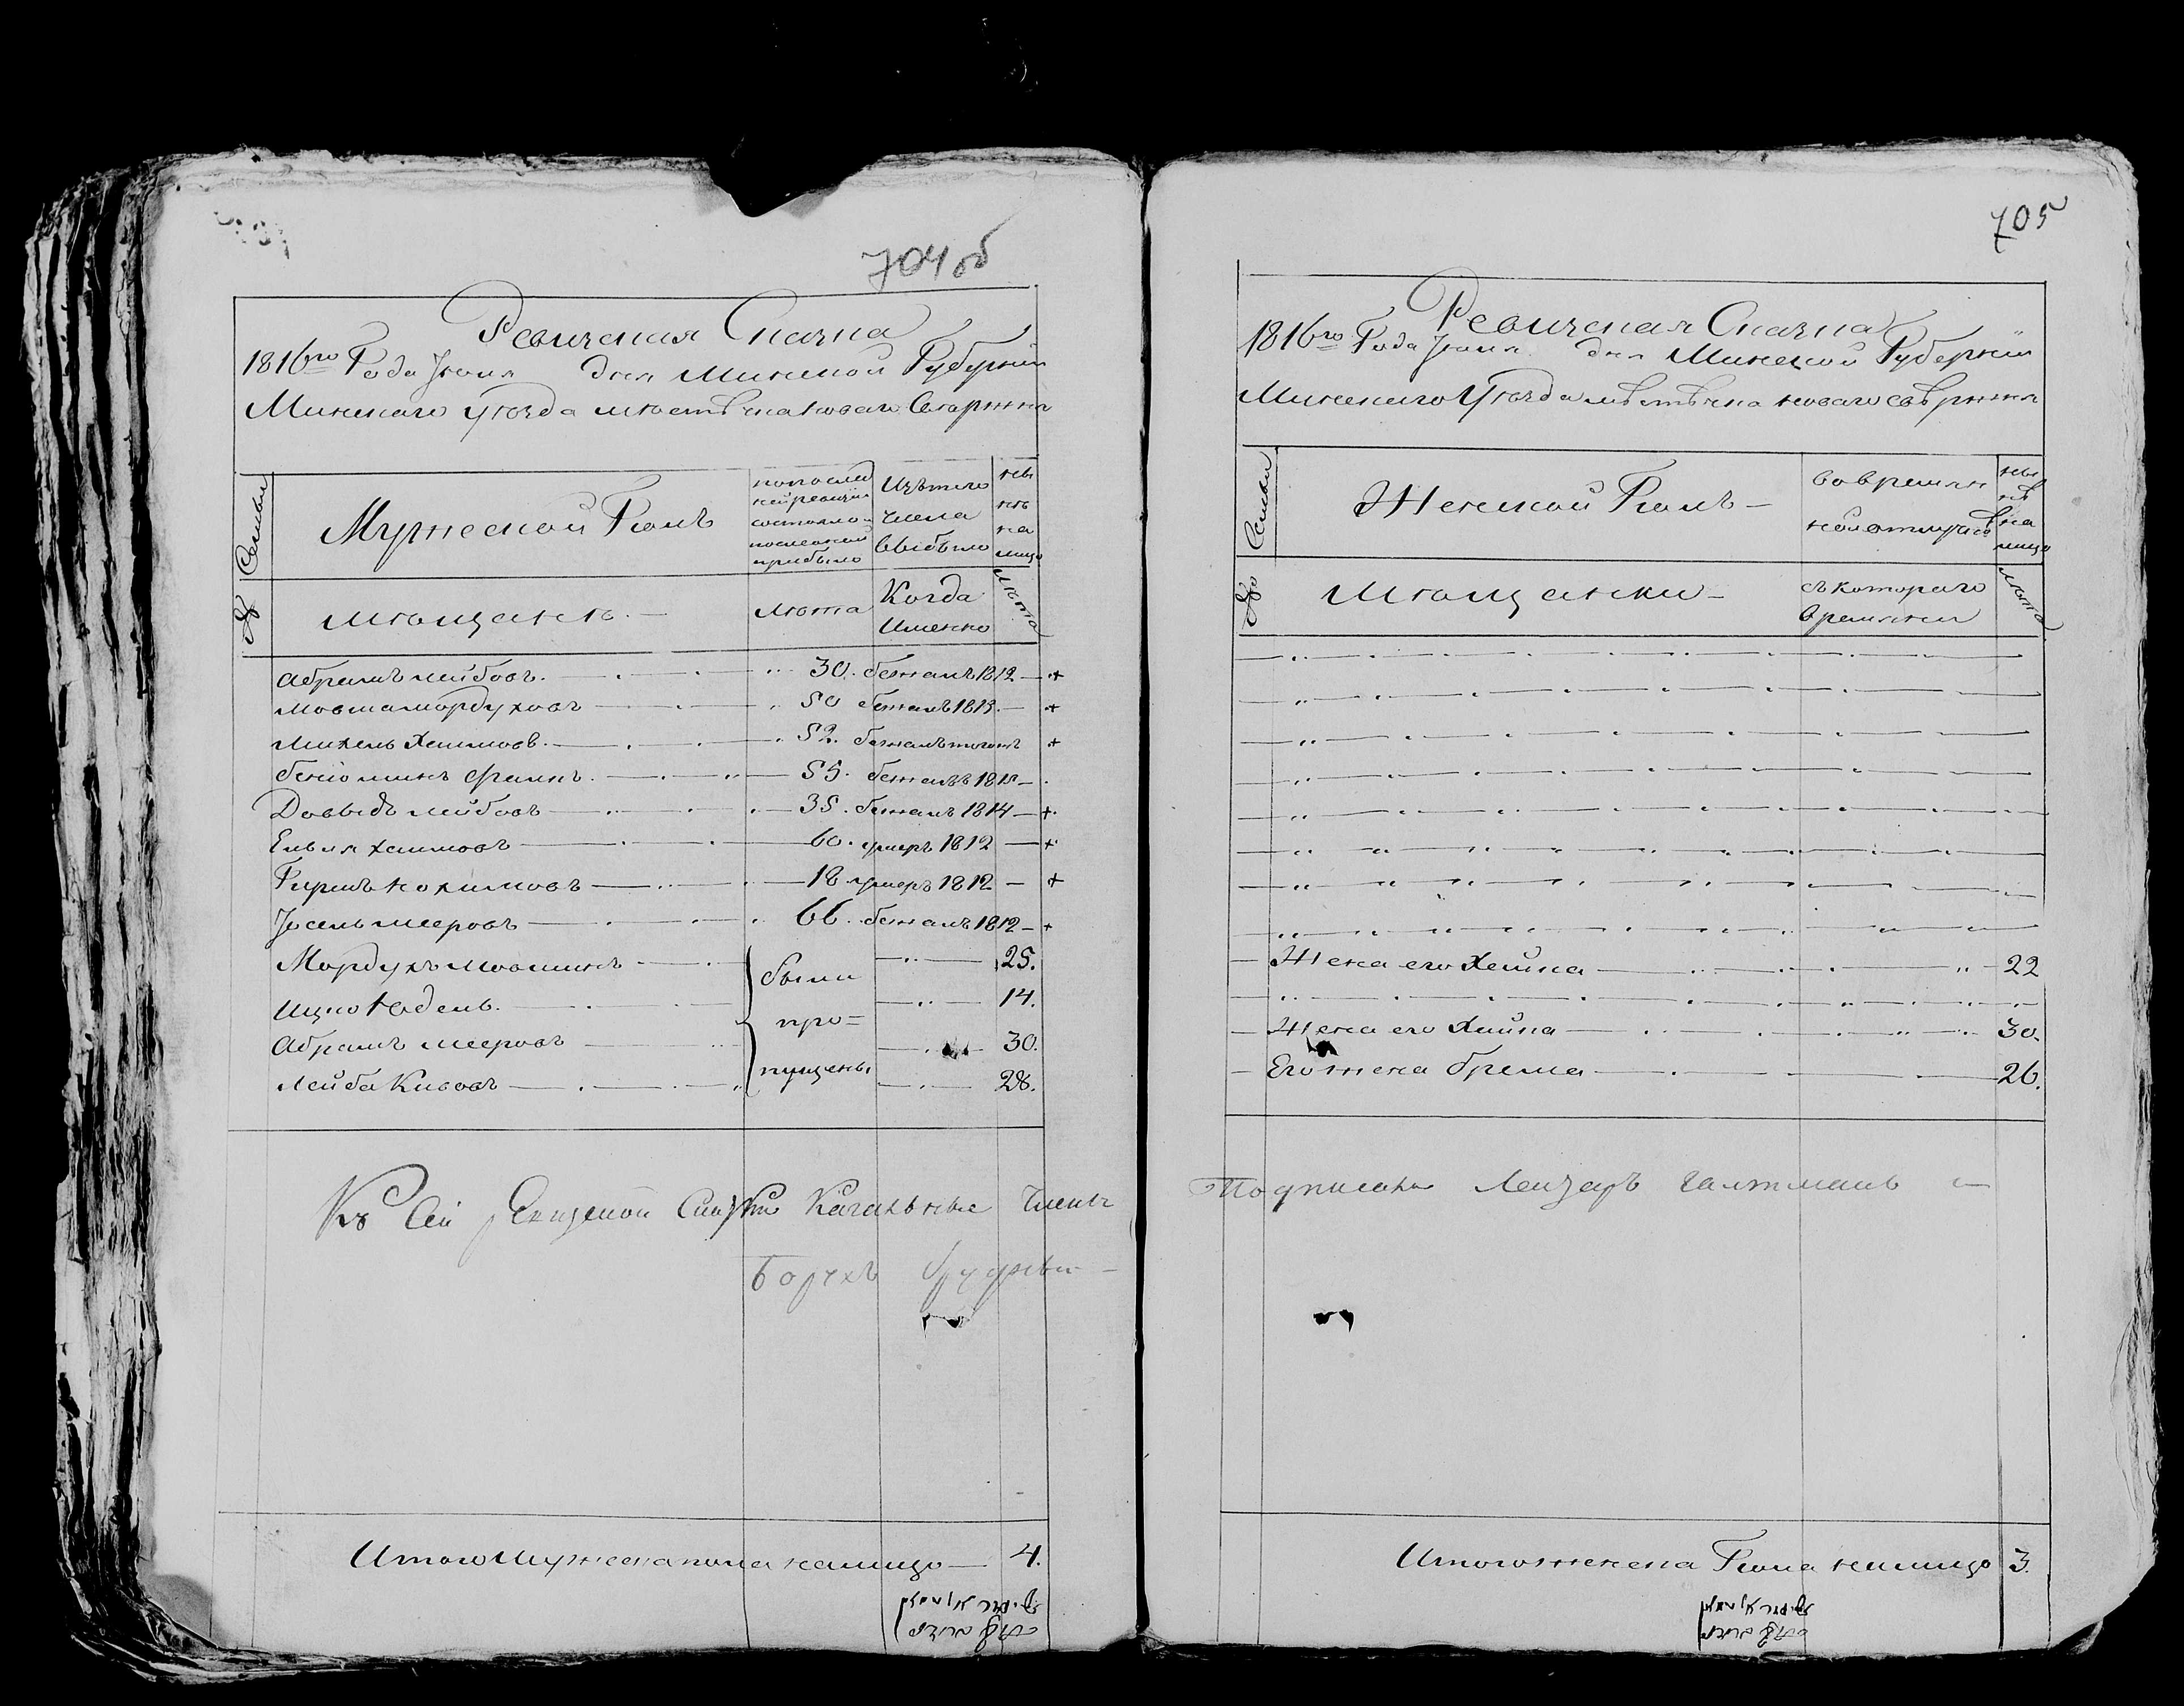 704 об
Ревизская Сказка
1816го Года Июня дня Минской Губернии
Минскаго уезда местечка Новаго Свержня
Семьи
Мужеской Полъ
по последней ревизии состояло и после оной прибыло
Изъ того числа выбыло
ныне на лицо
№
мещанъ. —
лета
Когда Именно
лета
Абрамъ лейбовъ. 30. бежалъ 1812 — +
Мовша мордуховъ 50 бежалъ 1813. — +
Михель Хаимовъ. 52. бежалъ тогожъ +
55. бежалъ 1815 —
Довыдъ лейбовъ 35. бежалъ 1814 — +
Хаимовъ 60. умеръ 1812 — +
Гиршъ нохимовъ 18 умеръ 1812 — +
Иосель мееровъ 66. бежалъ 1812 — +
Мордухъ мовшинъ 25.
Ицко 14.
Абрамъ мееровъ 30.
Лейба Кивовъ 28.
были про=пущены
Къ Сей Ревизской Сказки Кагальные Члены
Борухъ
Итого мужеска пола налицо — 4.
705
Ревизская Сказка
1816го Года Июня дня Минской Губернии
Минскаго Уезда местечка новаго свержня
Семьи
Женской Полъ —
во временной отлучке
ныне на лицо
№
Мещанки —
съ котораго времени
лета
Жена его Хайка 22
Жена его Хайка 30.
Его жена 26.
Подписали Лейзеръ
Итого женска Пола налицо 3.